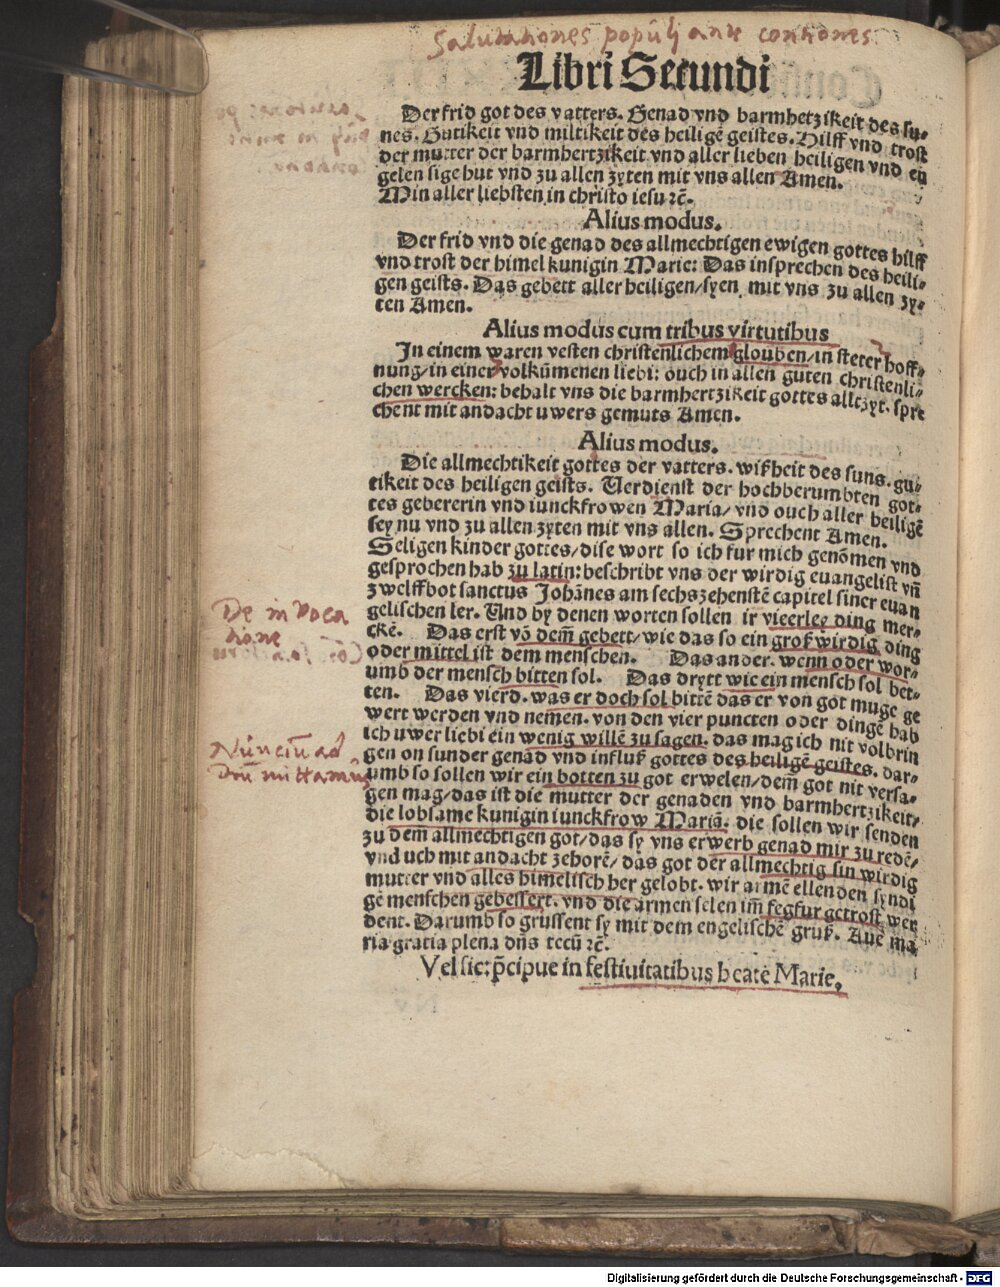 Salutationes populi ante contiones
Libri Secundi
Der frid got des vatters. Genad vnd barmhetzikeit des su-
nes. Gutikeit vnd miltikeit des heiligē geistes. Hilff vnd trost
der mutter der barmhertzikeit vnd aller lieben heiligen vnd en
gelen sige hut vnd zu allen zyten mit vns allen Amen.
Min aller liebsten in christo iesu ꝛc̄.
Alius modus.
Der frid vnd die genad des allmechtigen ewigen gottes hilff
vnd trost der himel kunigin Marie: Das insprechen des heili-
gen geists. Das gebett aller heiligen/syen mit vns zu allen zy-
ten Amen.
Alius modus cum tribus virtutibus
In einem waren vesten christenlichem glouben/in steter hoff-
nung/in einer volkūmenen liebi: ouch in allen guten christenli-
chen wercken: behalt vns die barmhertzikeit gottes alltzyt. spre
chent mit andacht uwers gemuts Amen.
Alius modus.
Die allmechtikeit gottes der vatters. wißheit des suns. gu-
tikeit des heiligen geists. Verdienst der hochberumbten got-
tes gebererin vnd iunckfrowen Maria/ vnd ouch aller heiligē
sey nu vnd zu allen zyten mit vns allen. Sprechent Amen.
Seligen kinder gottes/dise wort so ich fur mich genōmen vnd
gesprochen hab zu latin: beschribt vns der wirdig euangelist vñ
zwelffbot sanctus Johānes am sechszehenstē capitel siner euan
gelischen ler. Und by denen worten sollen ir vierley ding mer-
ckē. Das erst vō dem̄ gebett/wie das so ein groß wirdig ding
oder mittel ist dem menschen. Das ander. wenn oder wor-
umb der mensch bitten sol. Das drytt wie ein mensch sol bet-
ten. Das vierd. was er doch sol bittē das er von got muge ge
wert werden vnd nemen. von den vier puncten oder dingē hab
ich uwer liebi ein wenig willē zu sagen. das mag ich nit volbrin
gen on sunder genād vnd influß gottes des heiligē geistes. dar-
umb so sollen wir ein botten zu got erwelen/dem̄ got nit versa-
gen mag/das ist die mutter der genaden vnd barmhertzikeit/
die lobsame kunigin iunckfrow Mariā. die sollen wir senden
zu dem allmechtigen got/das sy vns erwerb genad mir zu redē/
vnd uch mit andacht zehorē/das got der allmechtig sin wirdig
mutter vnd alles himelisch her gelobt. wir armē ellenden syndi
gē menschen gebessert. vnd die armen selen im̄ fegfur getrost wer
dent. Darumb so grussent sy mit dem engelischē gruß. Auē ma
ria gratia plena dn̄s tecū ꝛc̄.
Vel sic: p̄cipue in festiuitatibus beate Marie.
De invoca
tione
Nunciū ad
Dn̄m mittamus
Digitalisierung gefördert durch die Deutsche Forschungsgemeinschaft - DFG